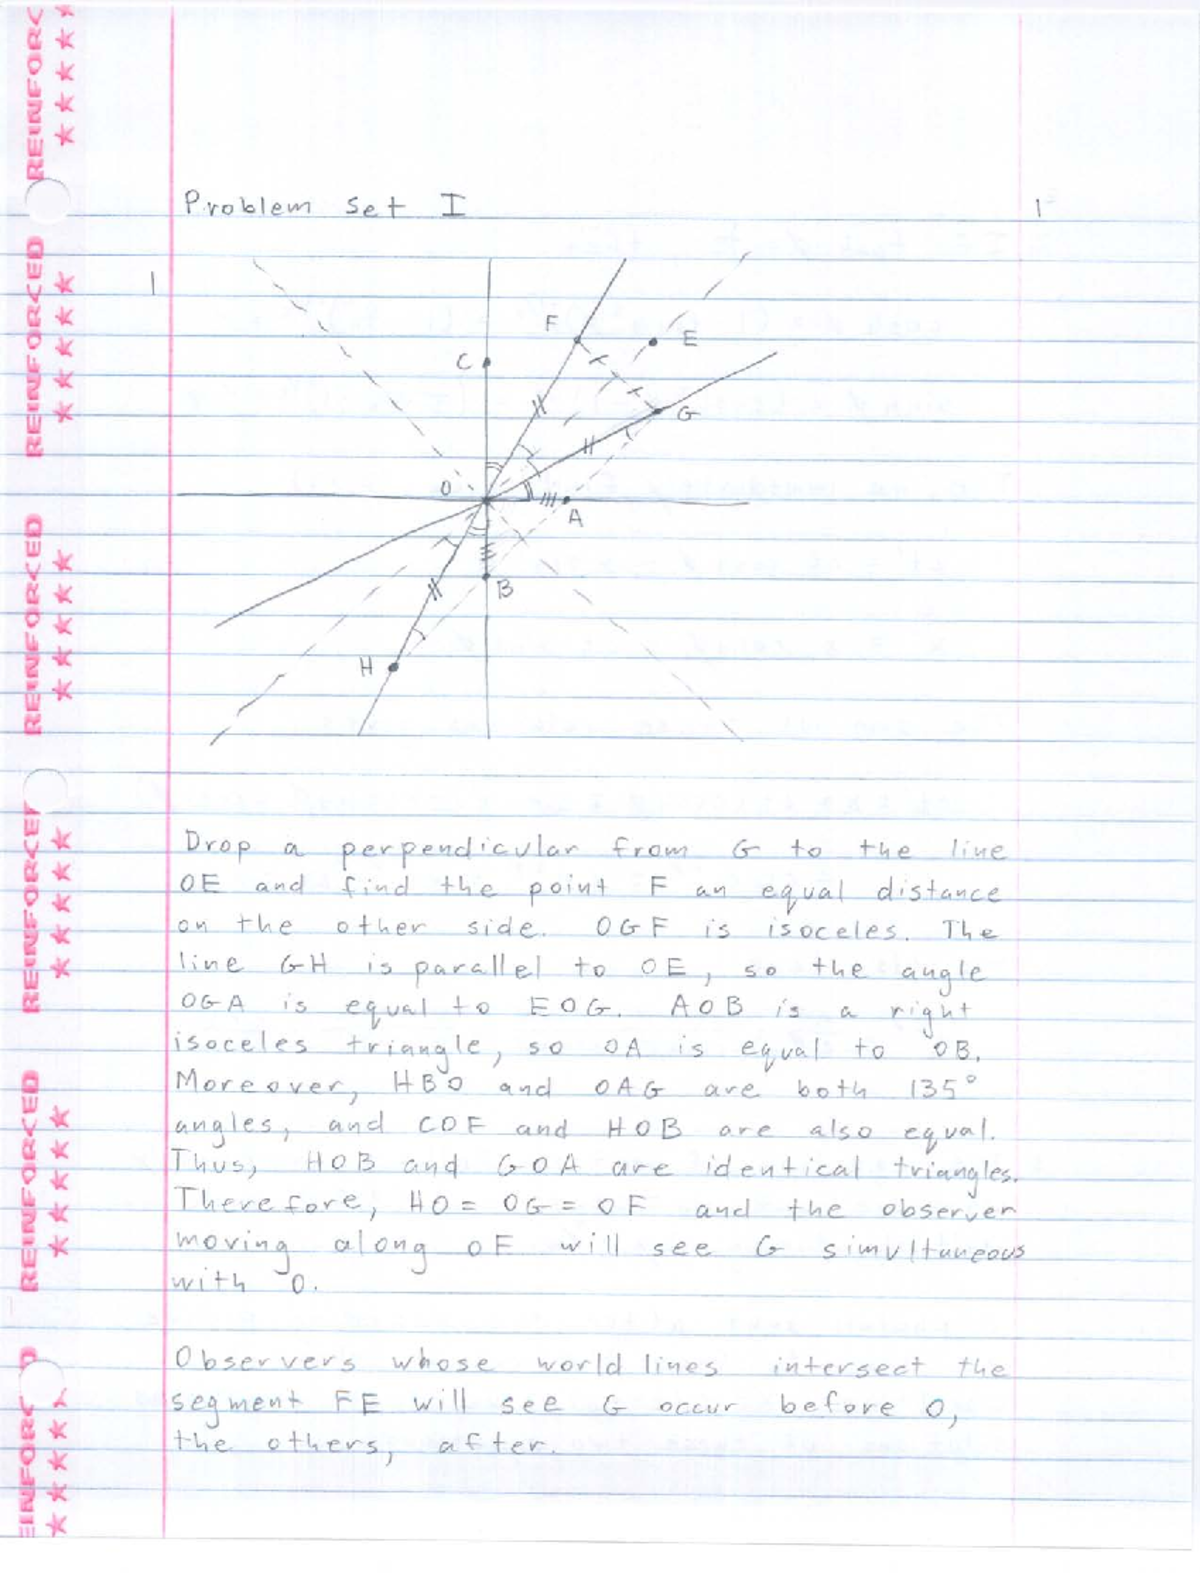 Problem Set I 1
1
F
E
C
G
O
A
B
H
Drop a perpendicular from G to the line
OE and find the point F an equal distance
on the other side. OGF is isoceles. The
line GH is parallel to OE, so the angle
OGA is equal to EOG. AOB is a right
isoceles triangle, so OA is equal to OB.
Moreover, HBO and OAG are both 135°
angles, and COF and HOB are also equal.
Thus, HOB and GOA are identical triangles.
Therefore, HO = OG = OF and the observer
moving along OF will see G simultaneous
with O.
Observers whose world lines intersect the
segment FE will see G occur before O,
the others, after.
REINFORC
REINFORCED
REINFORCED
REINFORCE
REINFORCED
EINFORC D